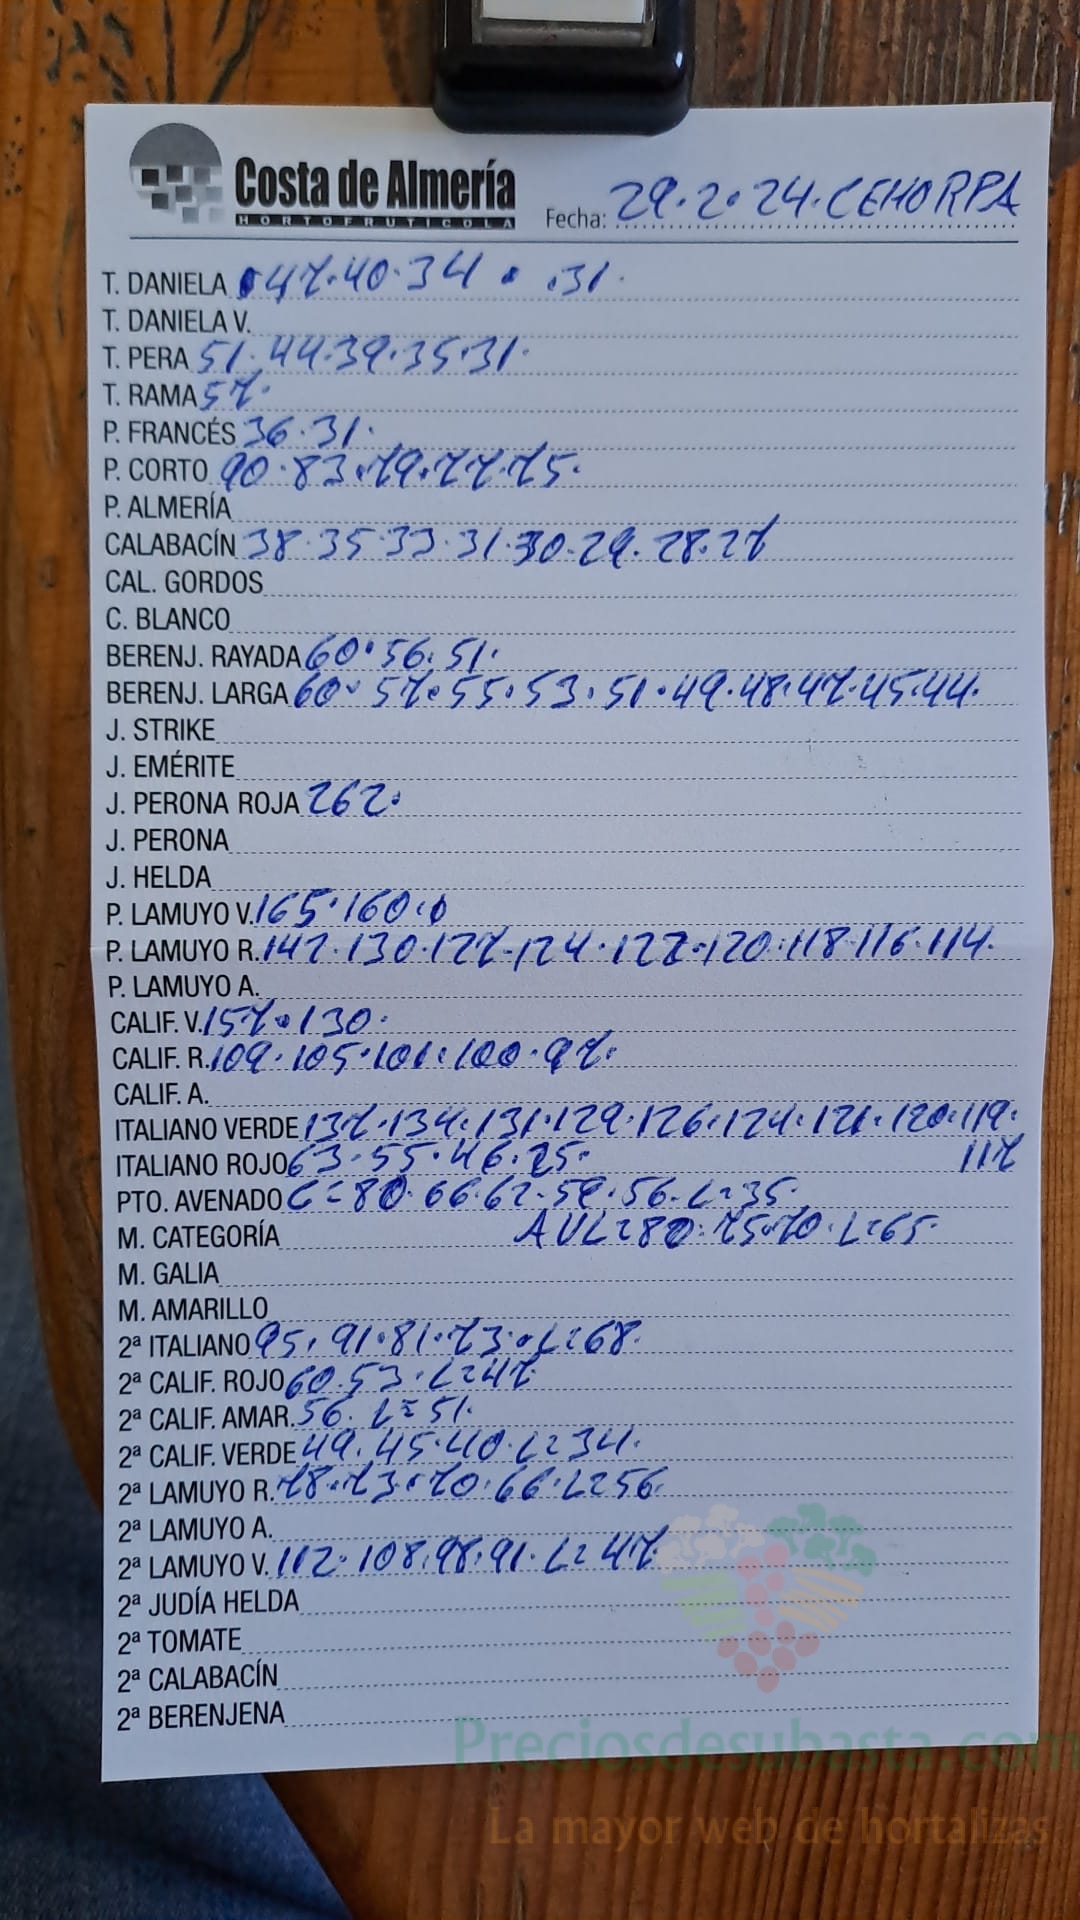 Costa de Almería
HORTOFRUTICOLA
Fecha: 29.2.24.CEHORPA
T. DANIELA 47.40.34 . .31.
T. DANIELA V.
T. PERA 51.44.39.35.31.
T. RAMA 57.
P. FRANCÉS 36.31.
P. CORTO 90.83.79.77.75.
P. ALMERÍA
CALABACÍN 38.35.33.31.30.29.28.27
CAL. GORDOS
C. BLANCO
BERENJ. RAYADA 60.56.51.
BERENJ. LARGA 60.57.55.53.51.49.48.47.45.44.
J. STRIKE
J. EMÉRITE
J. PERONA ROJA 262.
J. PERONA
J. HELDA
P. LAMUYO V. 165.160.
P. LAMUYO R. 142.130.127.124.122.120.118.116.114.
P. LAMUYO A.
CALIF. V. 157.130.
CALIF. R. 109.105.101.100.97.
CALIF. A.
ITALIANO VERDE 137.134.131.129.126.124.121.120.119.
117
ITALIANO ROJO 63.55.46.25.
PTO. AVENADO C=80.66.62.59.56.L=35.
M. CATEGORÍA AVL=80.75.70.L=65.
M. GALIA
M. AMARILLO
2ª ITALIANO 95.91.81.73.L=68.
2ª CALIF. ROJO 60.53.L=47
2ª CALIF. AMAR. 56.L=51.
2ª CALIF. VERDE 49.45.40.L=34.
2ª LAMUYO R. 78.73.70.66.L=56.
2ª LAMUYO A.
2ª LAMUYO V. 112.108.98.91.L=47
2ª JUDÍA HELDA
2ª TOMATE
2ª CALABACÍN
2ª BERENJENA
Preciosdesubasta.com
La mayor web de hortalizas